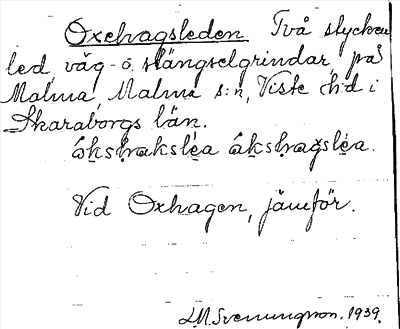 Oxehagsleden Två stycken
led, väg- o. stängselgrindar på
Malma, Malma s:n, Viste h:d i
Skaraborgs län.
ákshakslea ákshagslea.
Vid Oxhagen, jämför.
L.M. Svenungsson. 1939.